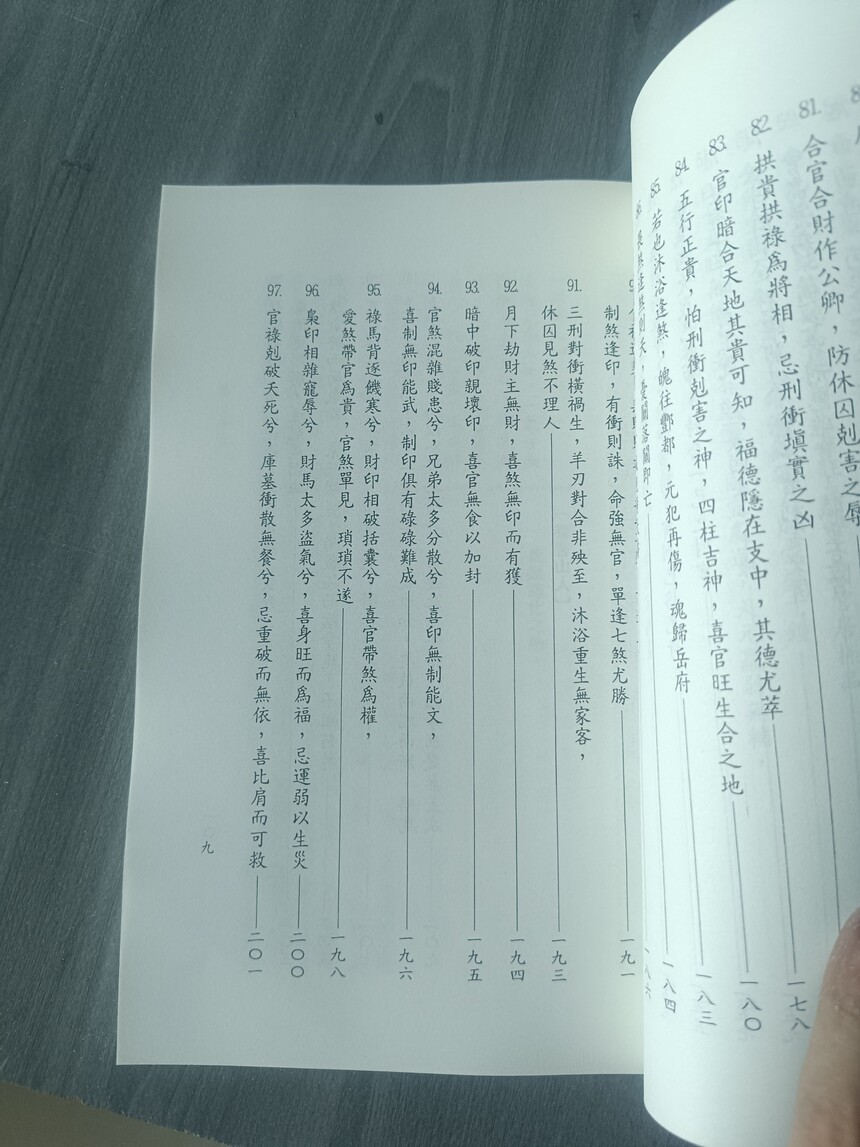 81. 合官合財作公卿，防休囚剋害之辱
82. 拱貴拱祿爲將相，忌刑衝塡實之凶 一七八
83. 官印暗合天地其貴可知，福德隱在支中，其德尤萃 一八〇
84. 五行正貴，怕刑衝剋害之神，四柱吉神，喜官旺生合之地 一八三
85. 若也沐浴逢煞，魄往酆都，元犯再傷，魂歸岳府 一八四
一八六
制煞逢印，有衝則誅，命強無官，單逢七煞尤勝 一九一
91. 三刑對衝橫禍生，羊刃對合非殃至，沐浴重生無家客，
休囚見煞不理人 一九三
92. 月下劫財主無財，喜煞無印而有獲 一九四
93. 暗中破印親壞印，喜官無食以加封 一九五
94. 官煞混雜賤患兮，兄弟太多分散兮，喜印無制能文，
喜制無印能武，制印俱有碌碌難成 一九六
95. 祿馬背逐饑寒兮，財印相破括囊兮，喜官帶煞爲權，
愛煞帶官爲貴，官煞單見，瑣瑣不遂 一九八
96. 梟印相雜寵辱兮，財馬太多盜氣兮，喜身旺而爲福，忌運弱以生災 二〇〇
97. 官祿剋破夭死兮，庫墓衝散無餐兮，忌重破而無依，喜比肩而可救 二〇一
九